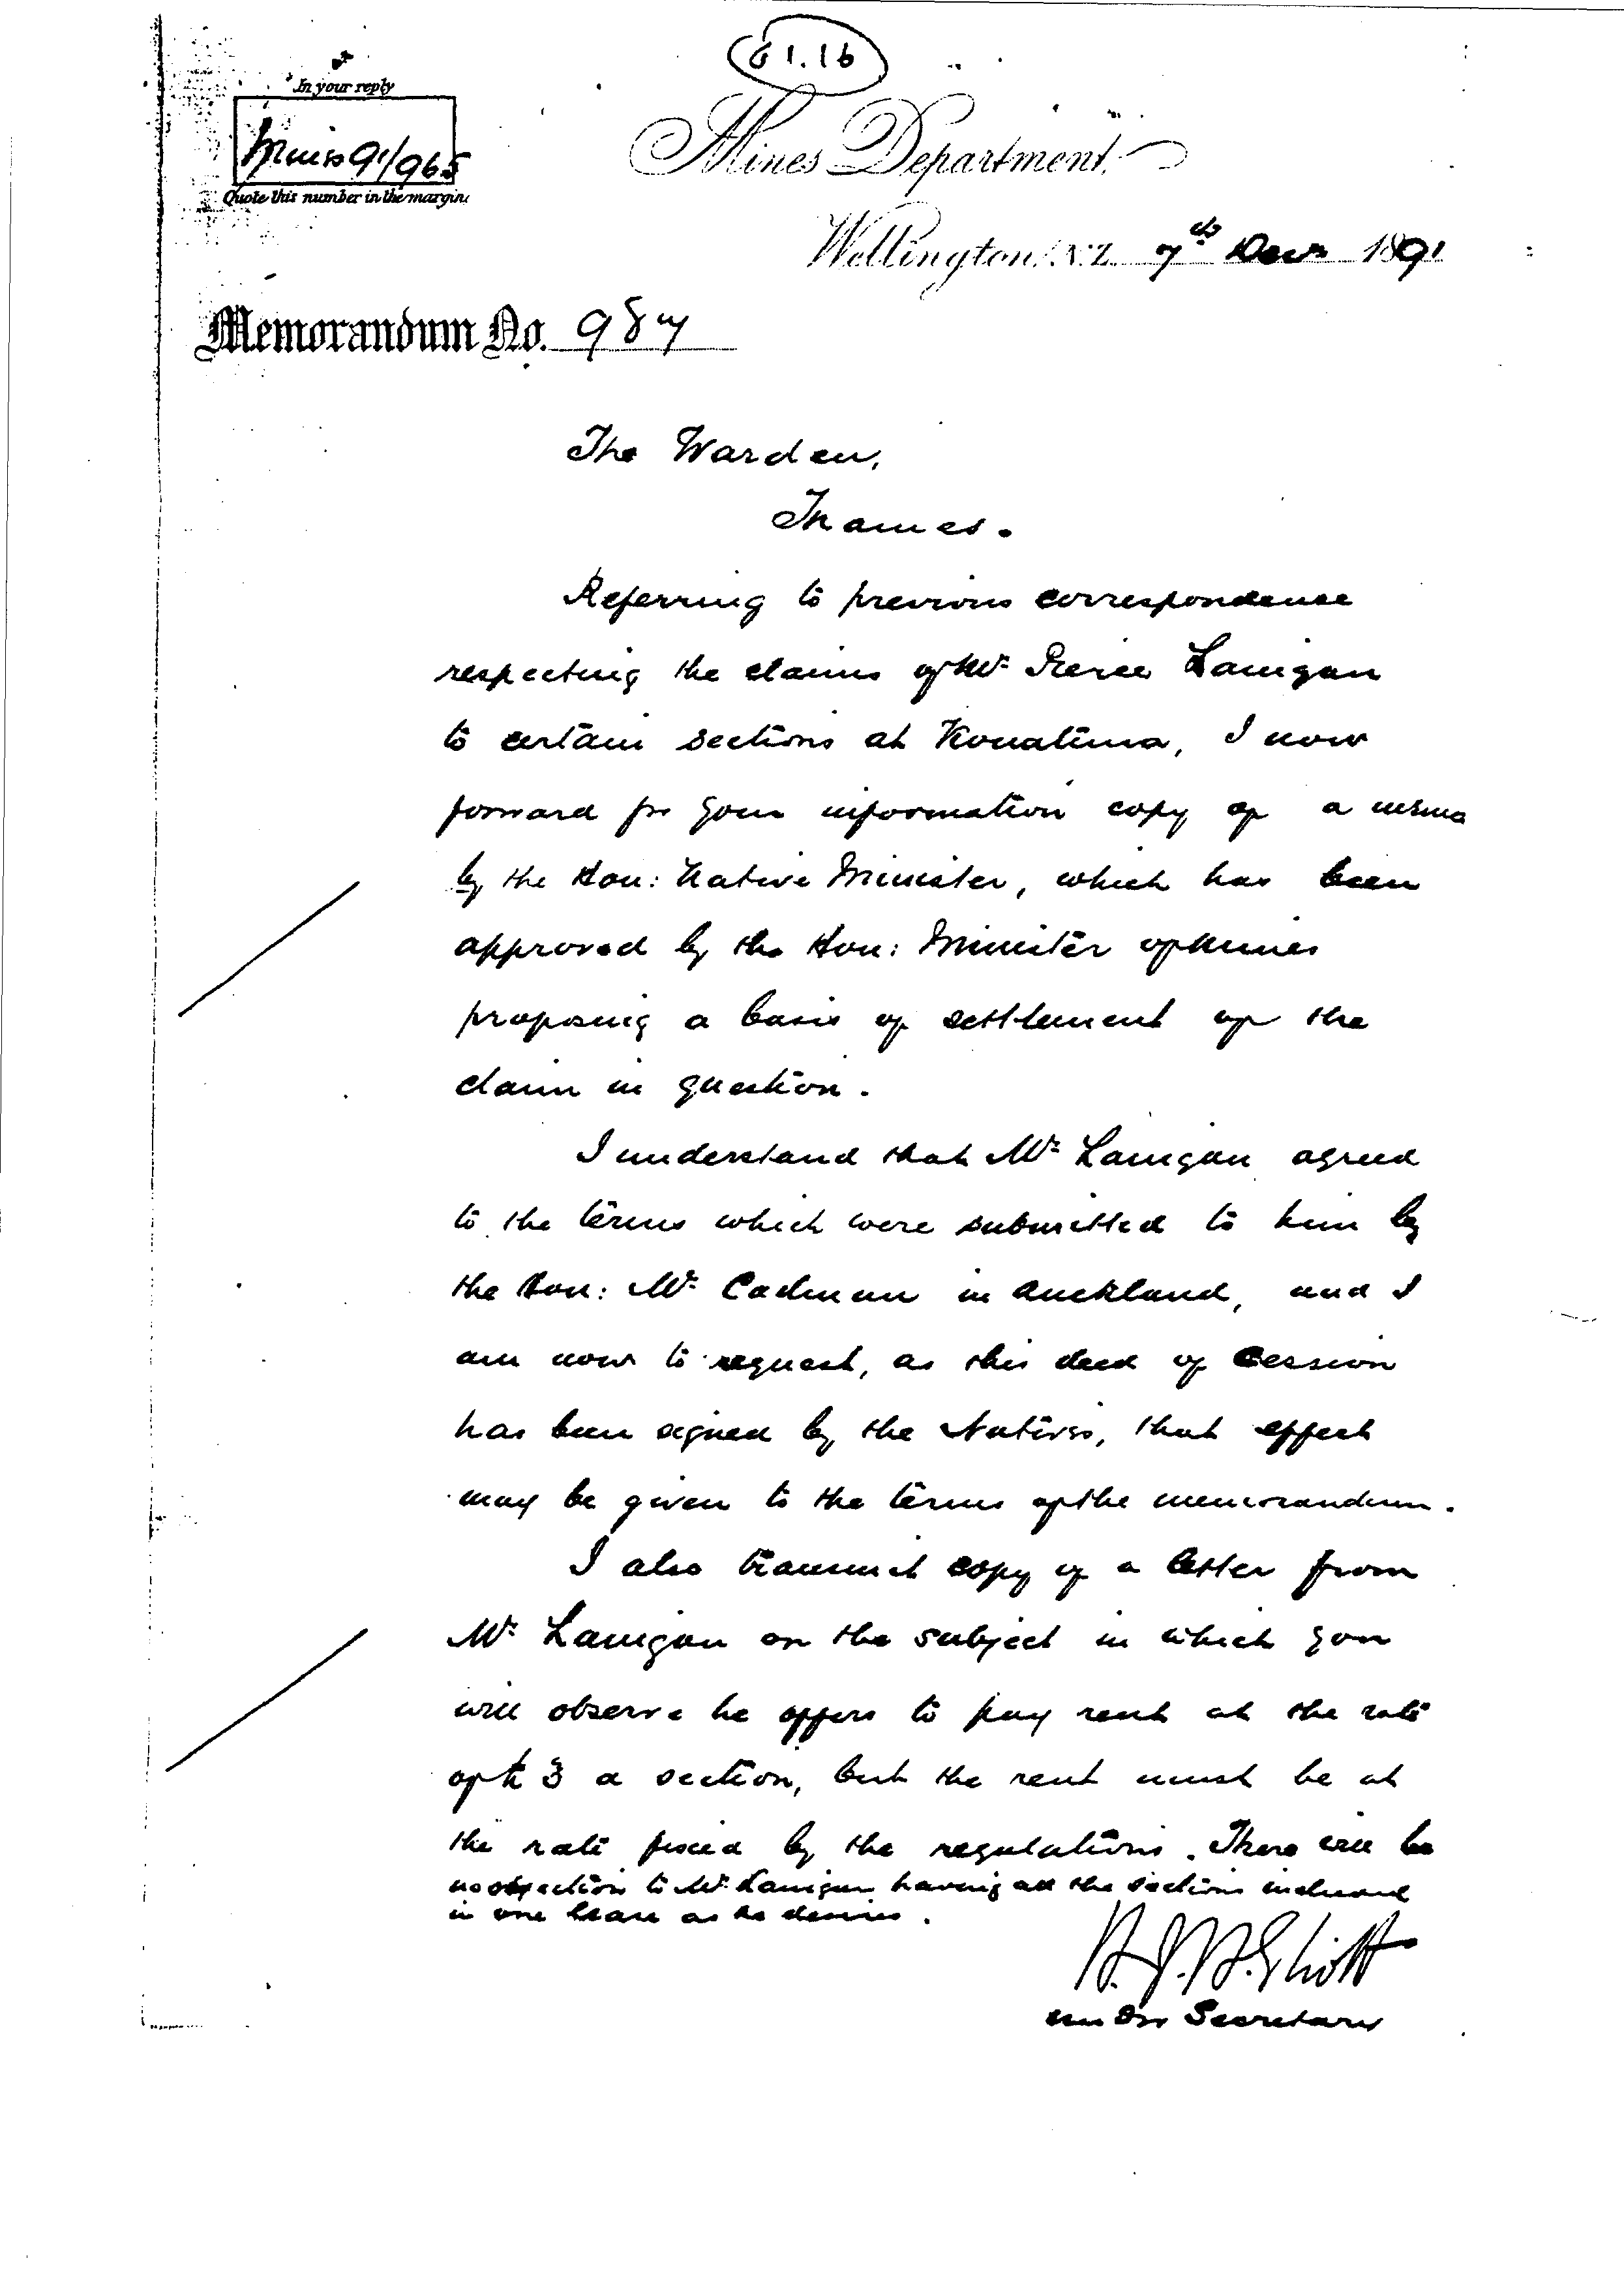 61.16
In your reply
Mines 91/965
Quote this number in the margin.
Mines Department.
Wellington, N.Z. 7th Decr 1891
Memorandum No. 987
The Warden,
Thames.
Referring to previous correspondence
respecting the claims of Mr Pierce Lanigan
to certain sections at Kouatuna, I now
forward for your information copy of a memo
by the Hon: Native Minister, which has been
approved by the Hon: Minister of Mines
proposing a basis of settlement of the
claim in question.
I understand that Mr Lanigan agreed
to the terms which were submitted to him by
the Hon: Mr Cadman in Auckland, and I
am now to request, as this deed of Cession
has been signed by the Natives, that effect
may be given to the terms of the memorandum.
I also transmit copy of a letter from
Mr Lanigan on the subject in which you
will observe he offers to pay rent at the rate
of £3 a section, but the rent must be at
the rate fixed by the regulations. There will be
no objection to Mr Lanigan having all the sections included
in one lease as he desires.
H. J. H. Eliott
Under Secretary